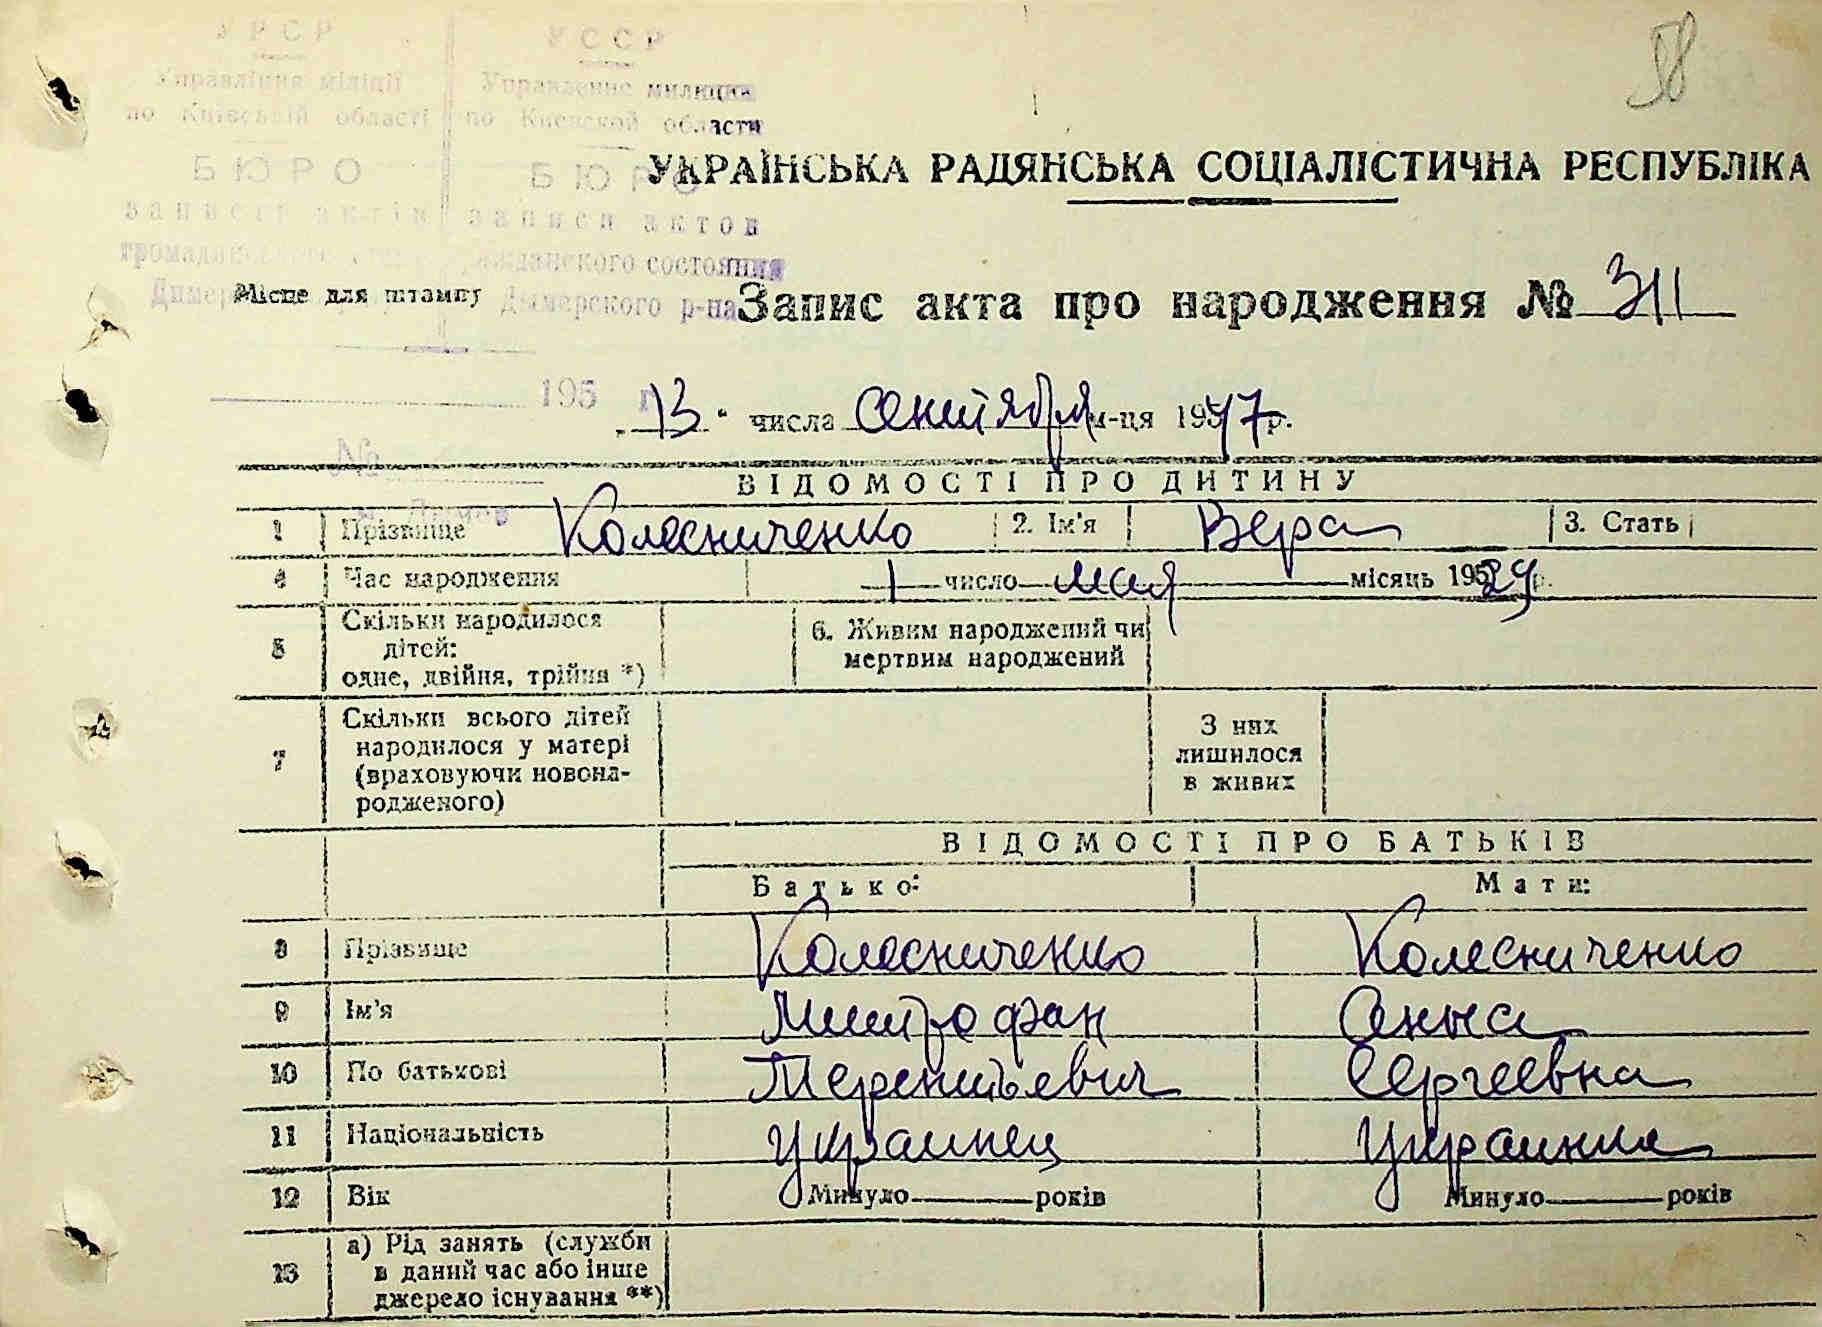 58
УРСР
Управління міліції
по Київській області
БЮРО
записів актів
Димер
УССР
Управление милиции
по Киевской области
БЮРО
записи актов
гражданского состояния
Дымерского р-на
195 г.
№
УКРАЇНСЬКА РАДЯНСЬКА СОЦІАЛІСТИЧНА РЕСПУБЛІКА
Місце для штампу
Запис акта про народження № 311
"13" числа сентября м-ця 1957 р.
ВІДОМОСТІ ПРО ДИТИНУ
1 Прізвище Колесниченко 2. Ім'я Вера 3. Стать
4 Час народження 1 число мая місяць 1929 р.
5 Скільки народилося
дітей:
одне, двійня, трійня *)
6. Живим народжений чи
мертвим народжений
7 Скільки всього дітей
народилося у матері
(враховуючи новона-
родженого)
З них
лишилося
в живих
ВІДОМОСТІ ПРО БАТЬКІВ
Батько: Мати:
8 Прізвище Колесниченко Колесниченко
9 Ім'я Митрофан Анна
10 По батькові Терентьевич Сергеевна
11 Національність украинец Украинка
12 Вік Минуло років Минуло років
13 а) Рід занять (служби
в даний час або інше
джерело існування **)